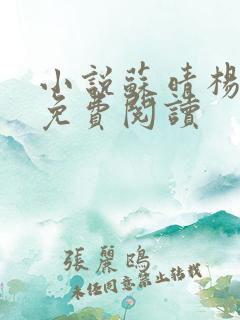 小說蘇晴楊
免費閱讀
張麗鴎
未任同意禁止轉載